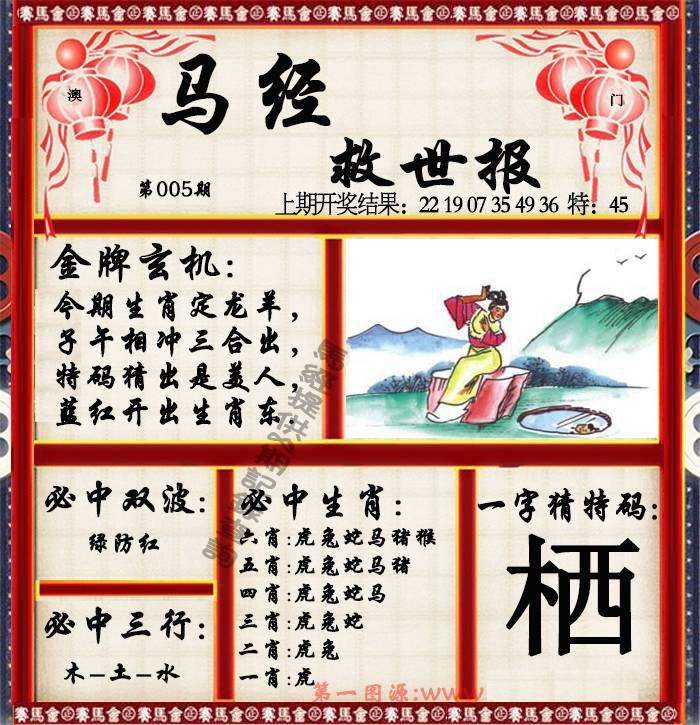 賽馬會 賽馬會 賽馬會 賽馬會 賽馬會 賽馬會 賽馬會 賽馬會
澳
门
马经
救世报
第005期
上期开奖结果：22 19 07 35 49 36 特：45
金牌玄机：
今期生肖定龙羊，
子午相冲三合出，
特码猜出是美人，
蓝红开出生肖东.
必中双波：
绿防红
必中三行：
木－土－水
必中生肖：
六肖:虎兔蛇马猪猴
五肖:虎兔蛇马猪
四肖:虎兔蛇马
三肖:虎兔蛇
二肖:虎兔
一肖:虎
一字猜特码：
栖
第一图源:www